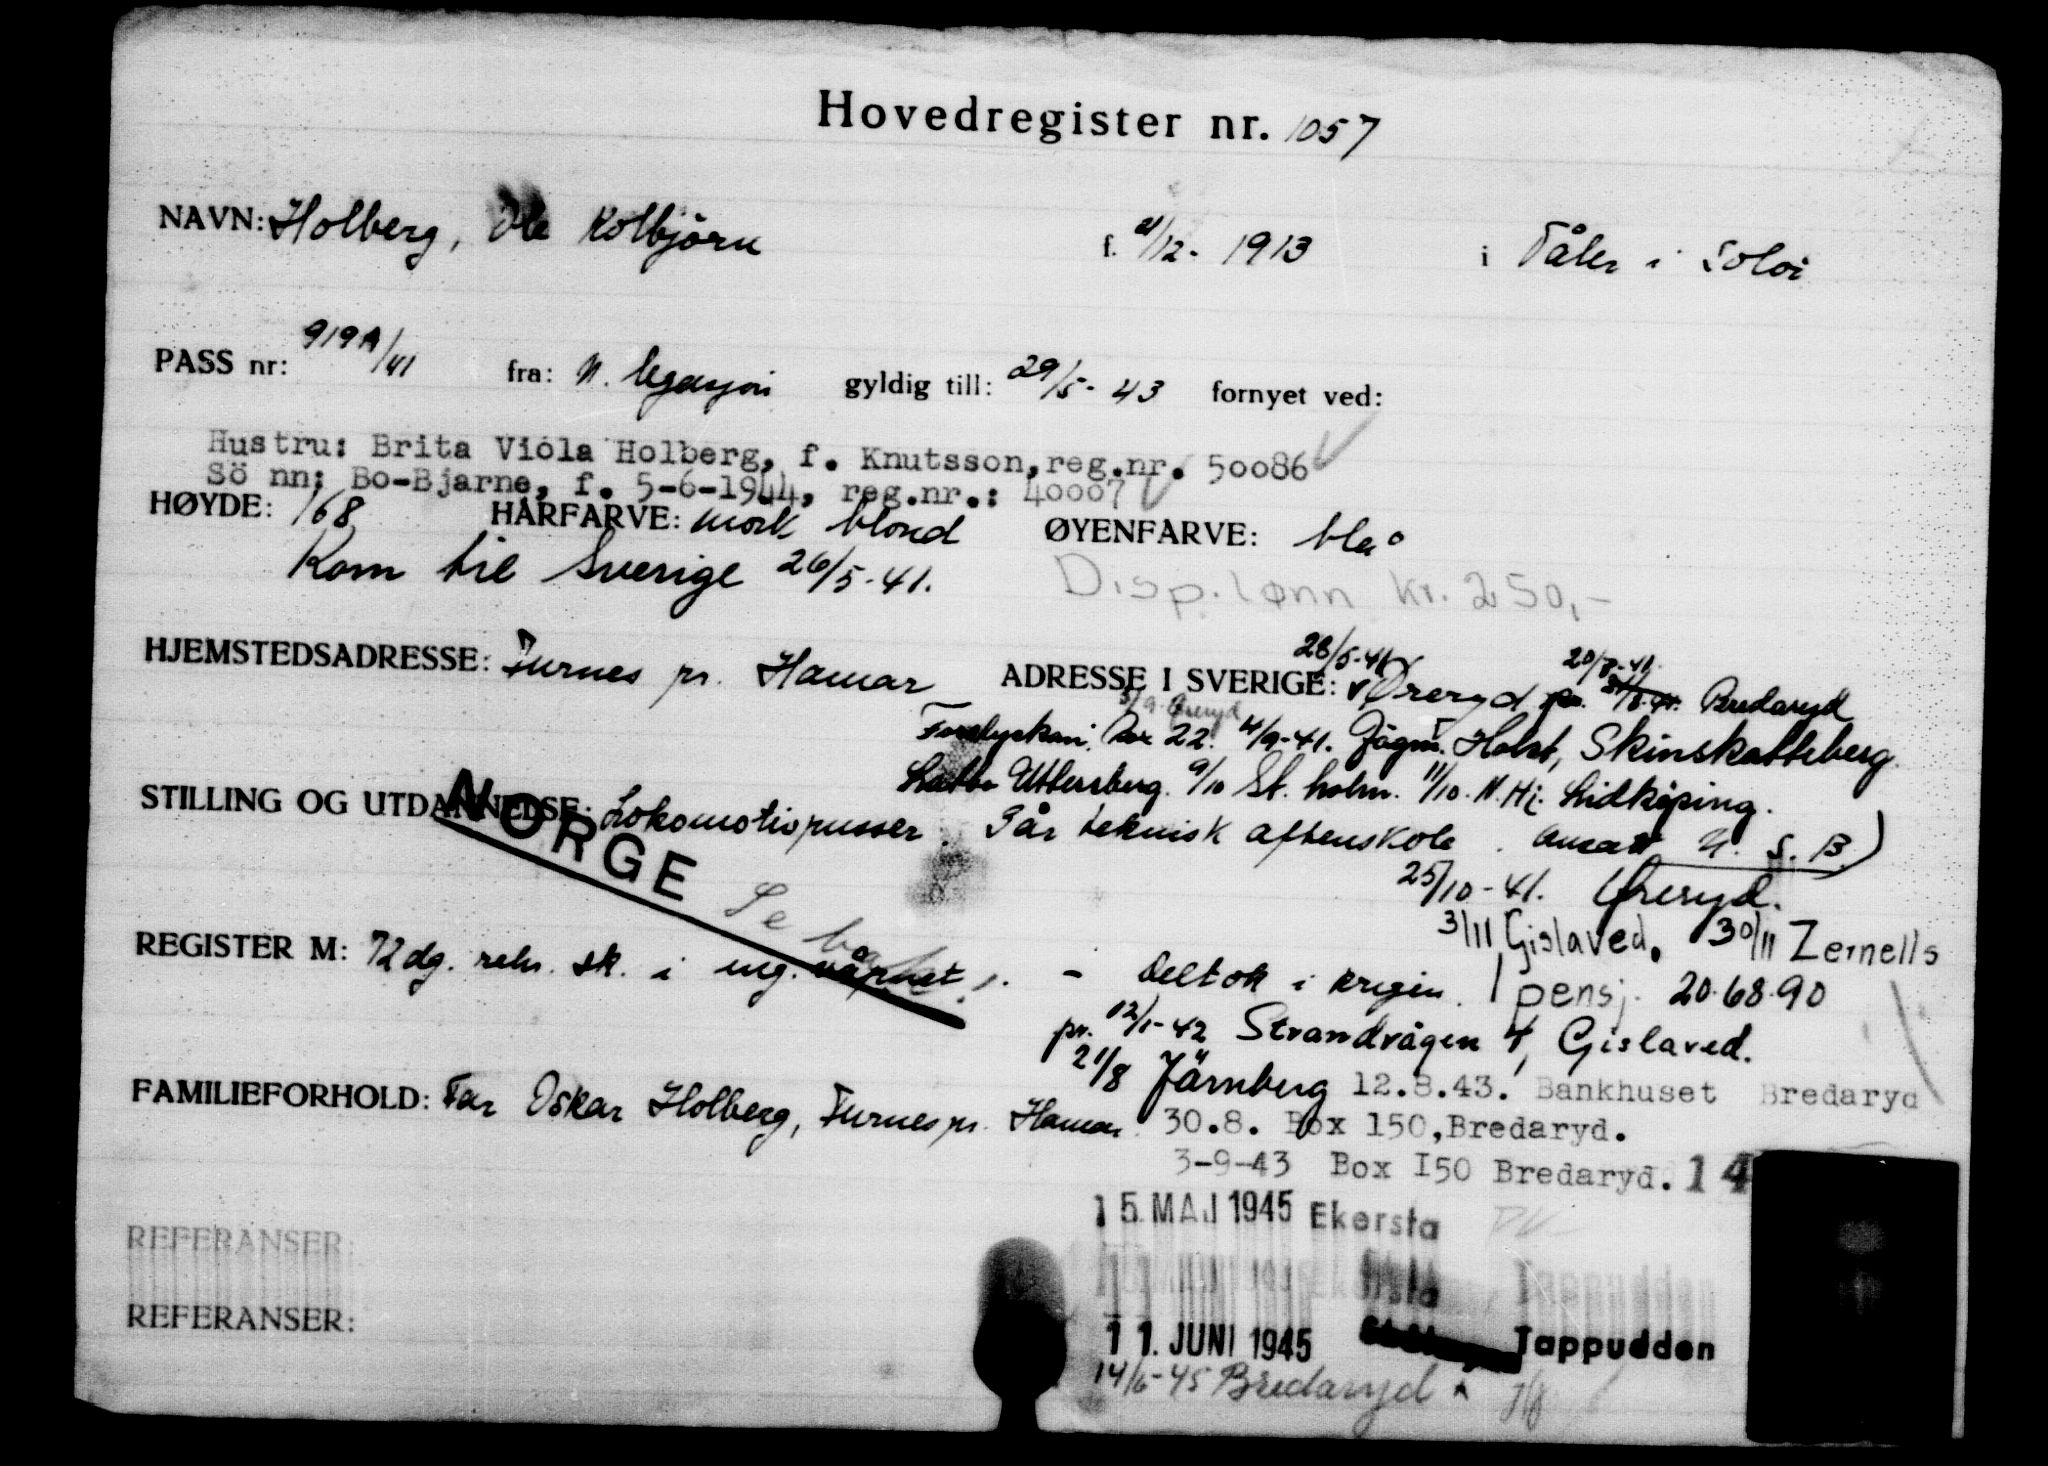 Hovedregister nr. 1057
NAVN: Holberg, Ole Kolbjörn f. 21/12- 1913 i Våler i Solör
PASS nr: 919A/41 fra: N. legasjon gyldig till: 29/5- 43 fornyet ved:
Hustru: Brita Vióla Holberg, f. Knutsson, reg.nr. 50086
Sö nn: Bo-Bjarne, f. 5-6-1944, reg.nr.: 40007
HØYDE: 168 HÅRFARVE: mörk blond ØYENFARVE: blå
Kom til Sverige 26/5-41. Disp. lønn kr. 250,-
28/5-41 20/8-41.
HJEMSTEDSADRESSE: Furnes pr. Hamar ADRESSE I SVERIGE: Öreryd pr. Bredaryd
3/9 Öreryd
Box 22. 4/9-41. Jägm. Holst, Skinskatteberg
Uttersberg. 9/10 St. holm. 11/10. N. Hj. Lidköping.
STILLING OG UTDANNELSE: Lokomotivpusser. 3 år teknisk aftenskole. Ansatt N. S. B.)
NORGE
25/10-41. Öreryd.
Se bak!
3/11 Gislaved. 30/11 Zernells
REGISTER M: 72 dg. rekr. sk. i ing. våpnet. - Deltok i krigen. pensj. 20.68.90
pr. 12/1-42 Strandvägen 4, Gislaved.
21/8 Järnberg 12.8.43. Bankhuset Bredaryd
FAMILIEFORHOLD: Far Oskar Holberg, Furnes pr. Hamar. 30.8. Box 150, Bredaryd.
3-9-43 Box I50 Bredaryd. 14
15. MAJ 1945 Ekersta
REFERANSER:
REFERANSER:
11. JUNI 1945 Tappudden
14/6-45 Bredaryd